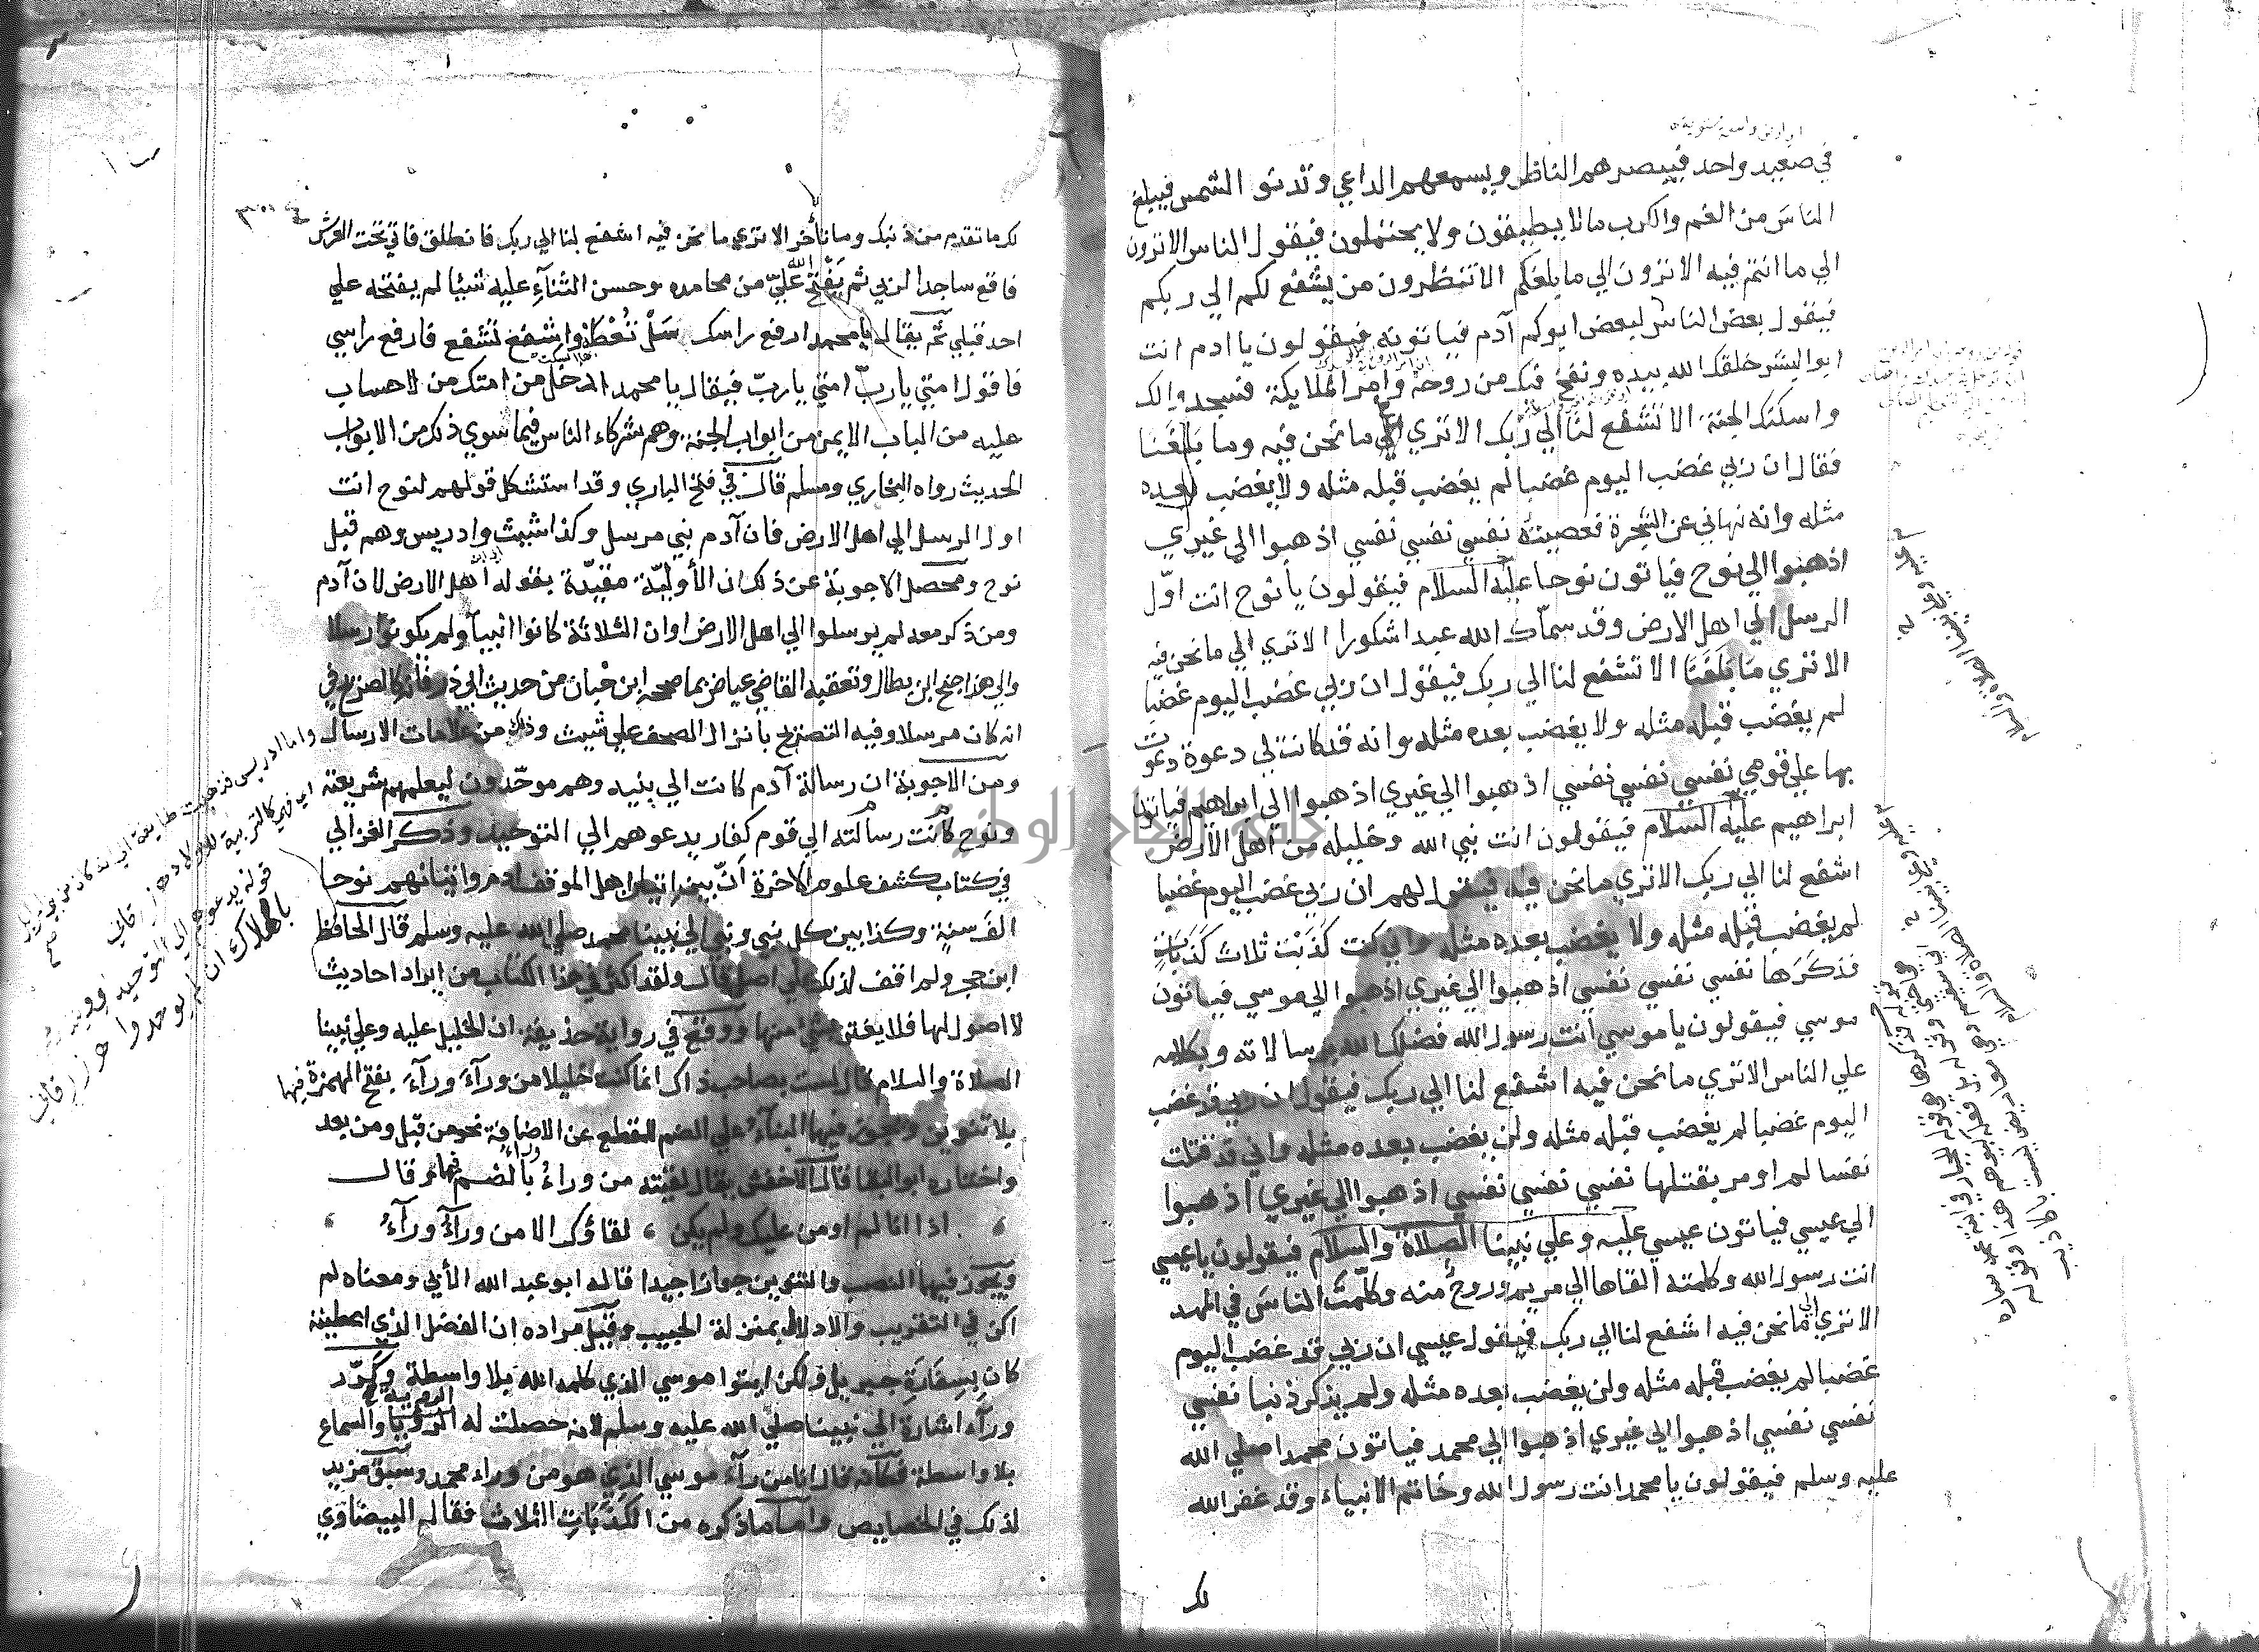 في صعيد واحد فيبصرهم الناظر ويسمعهم الداعي وتدنو الشمس فيبلغ
الناسَ من الغم والكرب مالا يطيقون ولا يحتملون فيقول الناس الا ترون
الي ما انتم فيه الا ترون الي ما بلغكم الا تنظرون من يشفع لكم الي ربكم
فيقول بعض الناس لبعض ابوكم آدم فياتونه فيقولون يا ادم انت
ابو البشر خلقك الله بيده ونفخ فيك من روحه وامر الملايكة فسجدوا لك
واسكنك الجنة الا تشفع لنا الي ربك الا تري الي ما نحن فيه وما بلغنا
فقال ان ربي غضب اليوم غضبا لم يغضب قبله مثله ولا يغضب بعده
مثله وانه نهاني عن الشجرة فعصيته نفسي نفسي نفسي اذهبوا الي غيري
اذهبوا الي نوح فياتون نوحا عليه السلام فيقولون يا نوح انت اوّل
الرسل الي اهل الارض وقد سمّاك الله عبدا شكورا الا تري الي ما نحن فيه
الا تري ما بلغنا الا تشفع لنا الي ربك فيقول ان ربي غضب اليوم غضبا
لم يغضب قبله مثله ولا يغضب بعده مثله وانه قد كانت لي دعوة دعوت
بها علي قومي نفسي نفسي نفسي اذهبوا الي غيري اذهبوا الي ابراهيم فياتون
ابراهيم عليه السلام فيقولون انت نبي الله وخليله من اهل الارض
اشفع لنا الي ربك الا تري ما نحن فيه فيقول لهم ان ربي غضب اليوم غضبا
لم يغضب قبله مثله ولا يغضب بعده مثله واني كنت كذبت ثلاث كذبات
فذكرها نفسي نفسي نفسي اذهبوا الي غيري اذهبوا الي موسي فياتون
موسي فيقولون يا موسي انت رسول الله فضلك الله برسالاته وبكلامه
علي الناس الا تري ما نحن فيه اشفع لنا الي ربك فيقول ان ربي قد غضب
اليوم غضبا لم يغضب قبله مثله ولن يغضب بعده مثله واني قد قتلت
نفسا لم اومر بقتلها نفسي نفسي نفسي اذهبوا الي غيري اذهبوا
الي عيسي فياتون عيسي عليه وعلي نبينا الصلاة والسلام فيقولون يا عيسي
انت رسول الله وكلمته القاها الي مريم وروح منه وكلّمت الناسَ في المهد
الا تري الي ما نحن فيه اشفع لنا الي ربك فيقول عيسي ان ربي قد غضب اليوم
غضبا لم يغضب قبله مثله ولن يغضب بعده مثله ولم يذكر ذنبا نفسي
نفسي نفسي اذهبوا الي غيري اذهبوا الي محمد فياتون محمدا صلي الله
عليه وسلم فيقولون يا محمد انت رسول الله وخاتم الانبياء وقد غفر الله
لك
لك ما تقدم من ذنبك وما تأخر الا تري ما نحن فيه اشفع لنا الي ربك فانطلق فاتي تحت العرش
فاقع ساجدا لربي ثم يفتح الله عليّ من محامده وحسن الثناء عليه شيئا لم يفتحه علي
احد قبلي ثم يقال يا محمد ارفع راسك سل تعطه واشفع تشفع فارفع راسي
فاقول امتي يا ربّ امتي يا ربّ فيقال يا محمد ادخل من امتك من لا حساب
عليه من الباب الايمن من ابواب الجنة وهم شركاء الناس فيما سوي ذلك من الابواب
الحديث رواه البخاري ومسلم قال في فتح الباري وقد استشكل قولهم لنوح انت
اول الرسل الي اهل الارض فان آدم نبي مرسل وكذا شيث وادريس وهم قبل
نوح ومحصل الاجوبة عن ذلك ان الأوليّة مقيّدة بقوله اهل الارض لان آدم
ومن ذكر معه لم يرسلوا الي اهل الارض او ان الثلاثة كانوا انبياء ولم يكونوا رسلا
والي هذا جنح ابن بطال وتعقبه القاضي عياض بما صححه ابن حبان من حديث ابي ذر فانه كالصريح في
انه كان مرسلا وفيه التصريح بانزال الصحف علي شيث وذلك من علامات الارسال
ومن الاجوبة ان رسالة آدم كانت الي بنيه وهم موحّدون ليعلمهم شريعته
ونوح كانت رسالته الي قوم كفار يدعوهم الي التوحيد وذكر الغزالي
في كتاب كشف علوم الاخرة انّ بين اتيان اهل الموقف ادم واتيانهم نوحا
الف سنة وكذا بين كل نبي ونبي الي نبينا محمد صلي الله عليه وسلم قال الحافظ
ابن حجر ولم اقف لذلك علي اصل قال ولقد اكثر في هذا الكتاب من ايراد احاديث
لا اصول لها فلا يغتر بشي منها ووقع في رواية حذيفة ان الخليل عليه وعلي نبينا
الصلاة والسلام قال لست بصاحب ذاك انما كنت خليلا من ورآء ورآء بفتح الهمزة فيها
بلا تنوين ويجوز فيها البناء علي الضم للقطع عن الاضافة نحو من قبل ومن بعد
واختاره ابو البقا قال الاخفش يقال لقيته من وراءُ بالضم وقال
اذا انا لم اومن عليك ولم يكن ، لقاؤك الا من ورآءُ ورآءُ
ويجوز فيها النصب والتنوين جوازا جيدا قاله ابو عبد الله الأبي ومعناه لم
اكن في التقريب والادلال بمنزلة الحبيب وقيل مراده ان الفضل الذي اعطيته
كان بسفارة جبريل ولكن ايتوا موسي الذي كلمه الله بلا واسطة وكرّر
ورآء اشارة الي نبينا صلي الله عليه وسلم لانه حصلت له الرويا والسماع
بلا واسطة فكانه قال انا من رآء موسي الذي هو من وراء محمد وسبق مزيد
لذلك في الخصايص واما ما ذكره من الكذبات الثلاث فقال البيضاوي